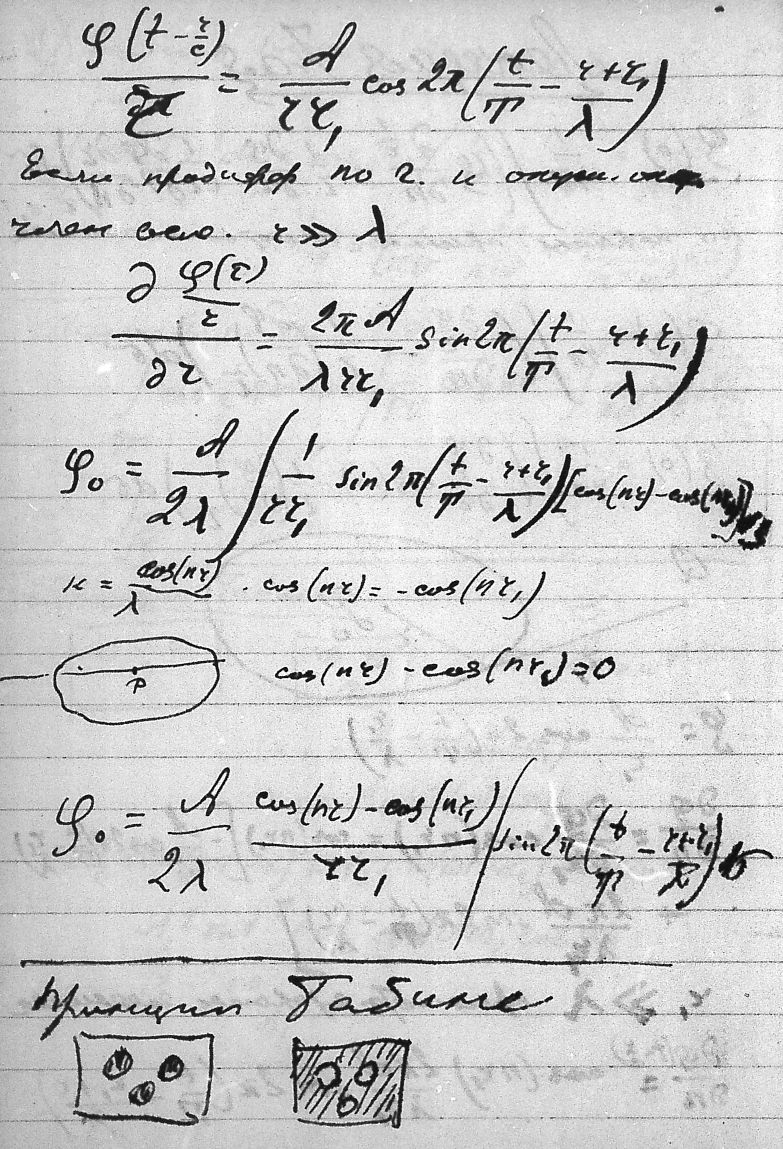 φ(t - r/c)/r = A/(r r₁) cos 2π(t/T - (r+r₁)/λ)
Если продифф по r. и
член вело. r ≫ λ
∂ (φ(τ)/r) / ∂r = 2πA/(λ r r₁) sin 2π(t/T - (r+r₁)/λ)
φ₀ = A/(2λ) ∫ 1/(r r₁) sin 2π(t/T - (r+r₁)/λ) [cos(nr) - cos(nr₁)]
κ = cos(nr)/λ . cos(nr) = - cos(nr₁)
P cos(nr) - cos(nr₁) = 0
φ₀ = A/(2λ) (cos(nr) - cos(nr₁))/(r r₁) ∫ sin 2π(t/T - (r+r₁)/λ)
Принцип Бабине